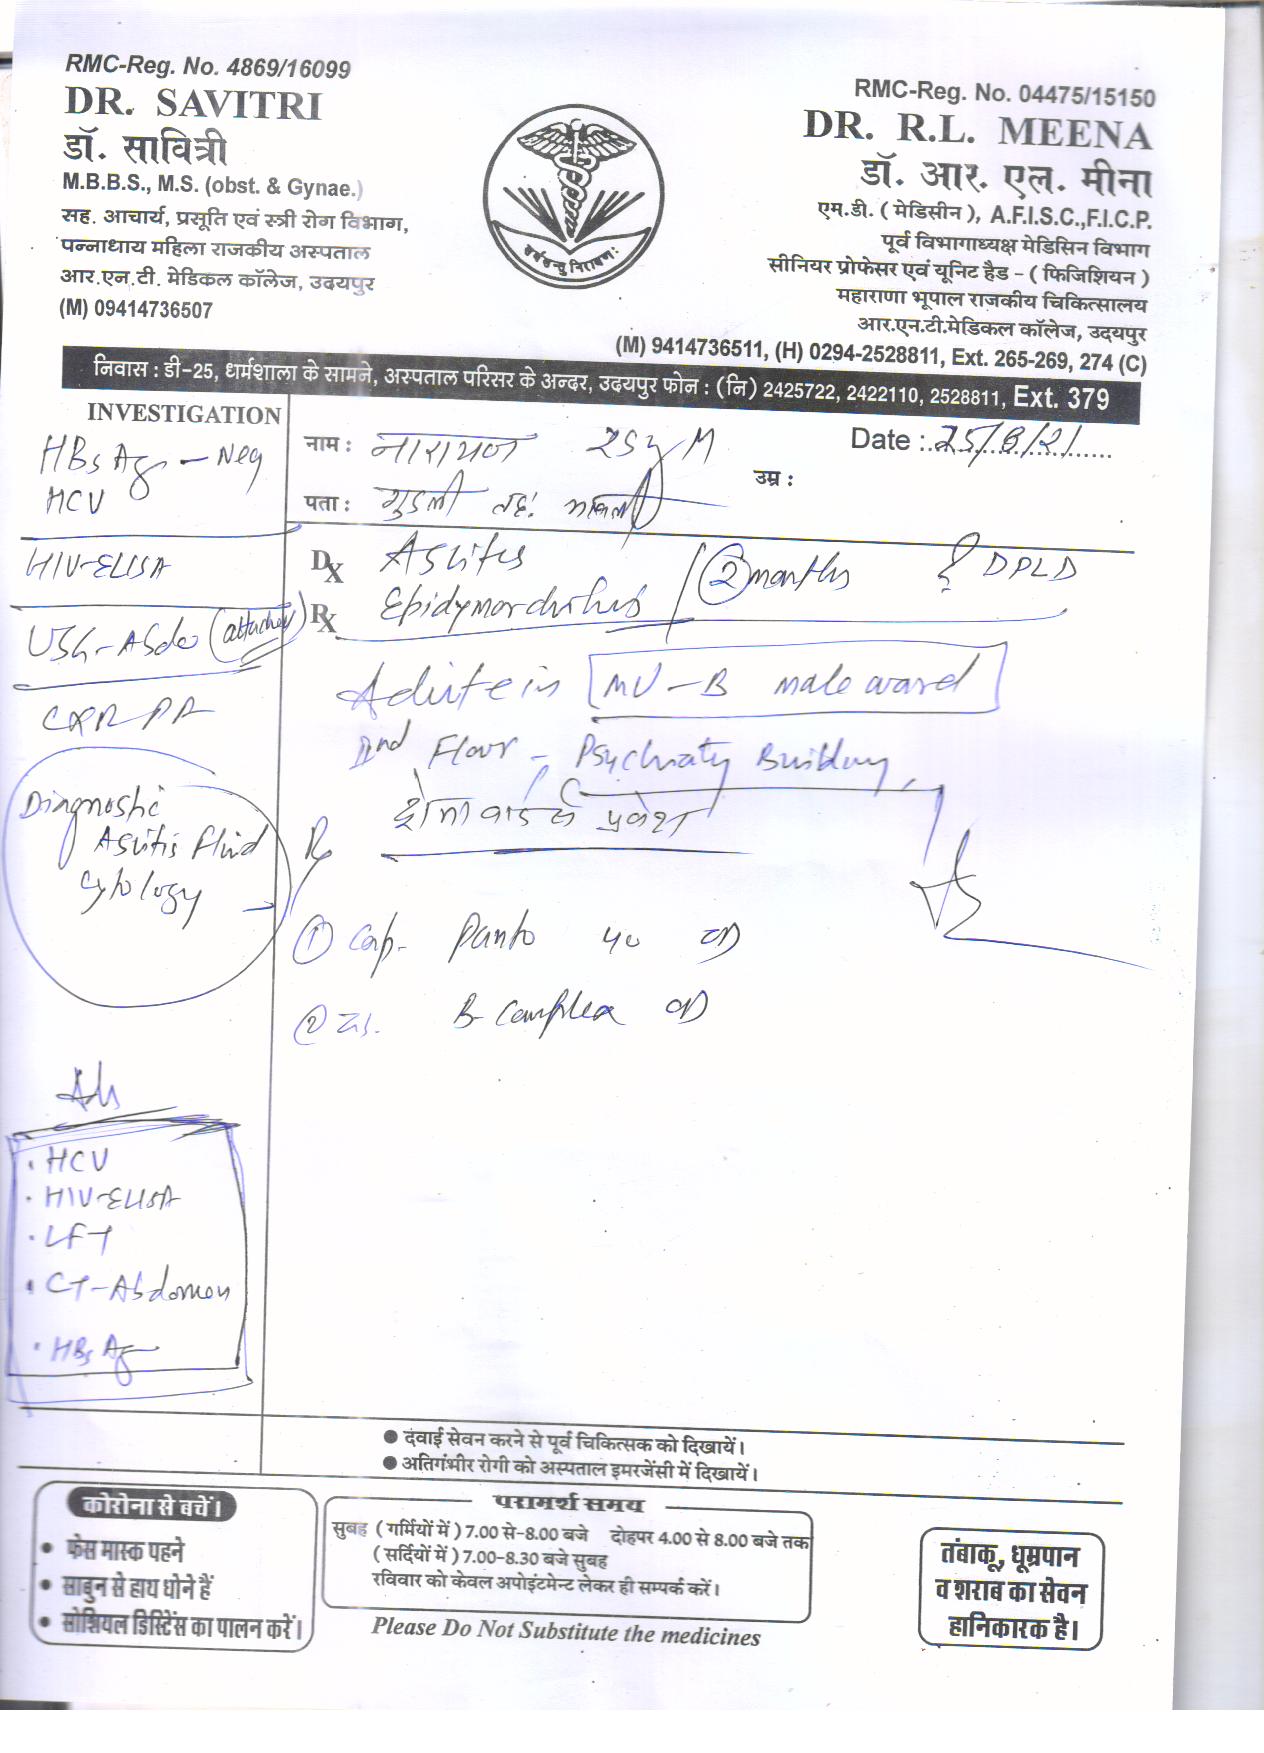 RMC-Reg. No. 4869/16099
DR. SAVITRI
डॉ. सावित्री
M.B.B.S., M.S. (obst. & Gynae.)
सह. आचार्य, प्रसूति एवं स्त्री रोग विभाग,
पन्नाधाय महिला राजकीय अस्पताल
आर.एन.टी. मेडिकल कॉलेज, उदयपुर
(M) 09414736507
सर्वेसन्तु निरामयाः
RMC-Reg. No. 04475/15150
DR. R.L. MEENA
डॉ. आर. एल. मीना
एम.डी. ( मेडिसीन ), A.F.I.S.C.,F.I.C.P.
पूर्व विभागाध्यक्ष मेडिसिन विभाग
सीनियर प्रोफेसर एवं यूनिट हैड - ( फिजिशियन )
महाराणा भूपाल राजकीय चिकित्सालय
आर.एन.टी.मेडिकल कॉलेज, उदयपुर
(M) 9414736511, (H) 0294-2528811, Ext. 265-269, 274 (C)
निवास : डी-25, धर्मशाला के सामने, अस्पताल परिसर के अन्दर, उदयपुर फोन : (नि) 2425722, 2422110, 2528811, Ext. 379
INVESTIGATION
HBsAg - Neg
HCV
HIV-ELISA
USG-Abdo (attached)
CXR-PA
Diagnostic
Ascitis fluid
Cytology
HCV
HIV-ELISA
LFT
CT-Abdomen
HBsAg
नाम : नारायण 25y M
Date : 25/8/21
उम्र :
पता : गुडली तह:
DX Ascites 2 months ? DPLD
RX
Admit in MU-B male ward
IInd Floor - Psychiatry Building,
Rx
① Cap. Panto 40 OD
② B-Complex OD
● दवाई सेवन करने से पूर्व चिकित्सक को दिखायें।
● अतिगंभीर रोगी को अस्पताल इमरजेंसी में दिखायें।
कोरोना से बचें।
● फेस मास्क पहने
● साबुन से हाथ धोने हैं
● सोशियल डिस्टिेंस का पालन करें।
परामर्श समय
सुबह ( गर्मियों में ) 7.00 से-8.00 बजे दोहपर 4.00 से 8.00 बजे तक
( सर्दियों में ) 7.00-8.30 बजे सुबह
रविवार को केवल अपोइंटमेन्ट लेकर ही सम्पर्क करें।
Please Do Not Substitute the medicines
तंबाकू, धूम्रपान
व शराब का सेवन
हानिकारक है।